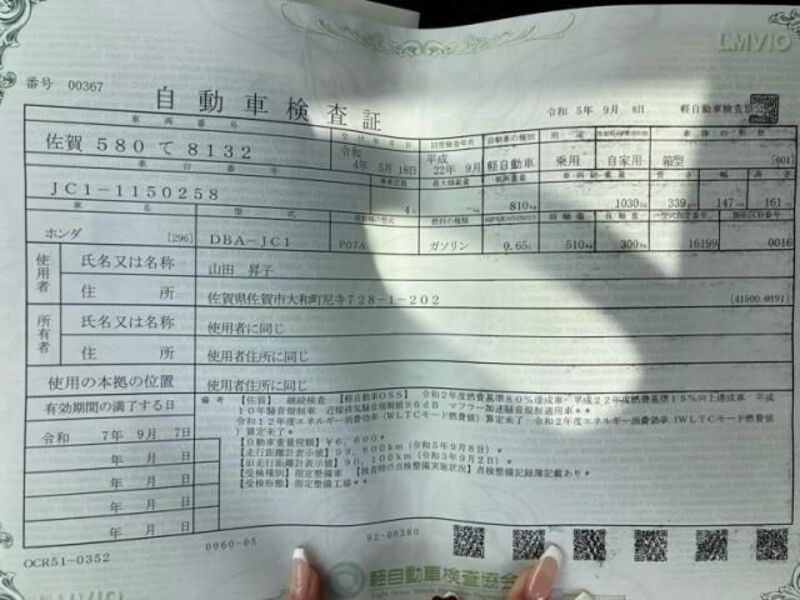 LMVIO
番号 00367
自動車検査証
令和 5年 9月 8日 軽自動車検査協
車両番号 交付年月日 初度検査年月 自動車の種別 用途 車体の形状
佐賀 580 て 8132 令和 4年 5月18日 平成 22年 9月 軽自動車 乗用 自家用 箱型 [001]
車台番号 乗車定員 最大積載量 車両重量 車両総重量 長さ 幅 高さ
JC1-1150258 4人 -kg 810kg 1030kg 339cm 147cm 161cm
車名 型式 原動機の型式 燃料の種類 前軸重 後軸重 類別区分番号
ホンダ [296] DBA-JC1 P07A ガソリン 0.65L 510kg 300kg 16199 0016
使用者 氏名又は名称 山田 昇子
住所 佐賀県佐賀市大和町尼寺728-1-202 [41500.0191]
所有者 氏名又は名称 使用者に同じ
住所 使用者住所に同じ
使用の本拠の位置 使用者住所に同じ
有効期間の満了する日
令和 7年 9月 7日
年 月 日
年 月 日
年 月 日
年 月 日
備考 【佐賀】 継続検査 【軽自動車OSS】 令和2年度燃費基準80%達成車 平成22年度燃費基準15%向上達成車 平成
10年騒音規制車 近接排気騒音規制値96dB マフラー加速騒音規制適用車**
令和12年度エネルギー消費効率(WLTCモード燃費値) 算定未了 令和2年度エネルギー消費効率(WLTCモード燃費値
) 算定未了*
【自動車重量税額】¥6,600*
【走行距離計表示値】99,600km(令和5年9月8日)*
【旧走行距離計表示値】90,100km(令和3年9月2日)*
【受検種別】指定整備車 【検査時の点検整備実施状況】点検整備記録簿記載あり*
【受検形態】指定整備工場**
OCR51-0352
0060-05
92-00380
軽自動車検査協会
LMVIO